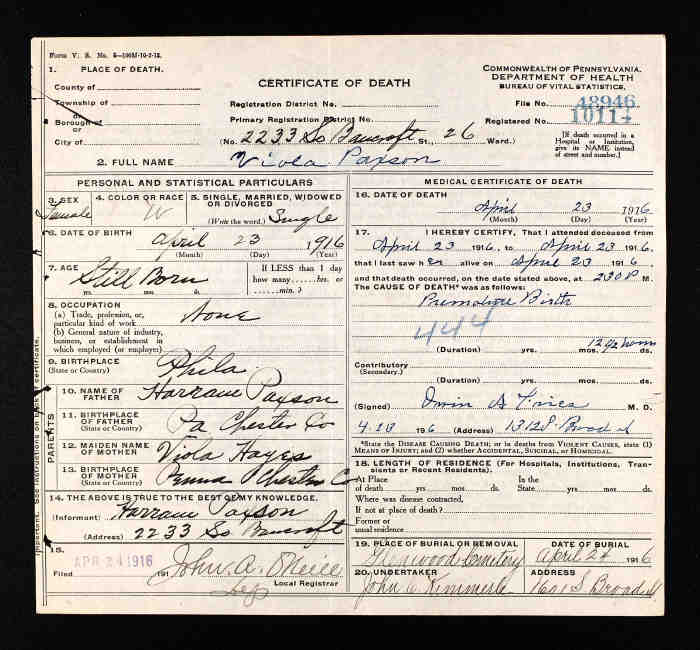 Form V. S. No. 5—100M-10-2-12.
1. PLACE OF DEATH.
County of
Township of
or
Borough of
or
City of
CERTIFICATE OF DEATH
Registration District No.
Primary Registration District No.
(No. 2233 So Bancroft St., 26 Ward.)
COMMONWEALTH OF PENNSYLVANIA.
DEPARTMENT OF HEALTH
BUREAU OF VITAL STATISTICS.
File No. 48946
Registered No. 10114
[If death occurred in a Hospital or Institution, give its NAME instead of street and number.]
2. FULL NAME Viola Paxson
PERSONAL AND STATISTICAL PARTICULARS
3. SEX Female
4. COLOR OR RACE W
5. SINGLE, MARRIED, WIDOWED OR DIVORCED
(Write the word.) Single
6. DATE OF BIRTH
April 23 1916
(Month) (Day) (Year)
7. AGE
Still Born
yrs. mos. ds.
If LESS than 1 day
how many hrs. or
min.?
8. OCCUPATION
(a) Trade, profession, or, particular kind of work
(b) General nature of industry, business, or establishment in which employed (or employer)
None
9. BIRTHPLACE
(State or Country) Phila
PARENTS
10. NAME OF FATHER Harram Paxson
11. BIRTHPLACE OF FATHER
(State or Country) Pa Chester Co
12. MAIDEN NAME OF MOTHER Viola Hayes
13. BIRTHPLACE OF MOTHER
(State or Country) Penna Chester Co
14. THE ABOVE IS TRUE TO THE BEST OF MY KNOWLEDGE.
(Informant) Harram Paxson
(Address) 2233 So Bancroft
15.
Filed APR 24 1916 191 John A. O'Neill
Local Registrar
MEDICAL CERTIFICATE OF DEATH
16. DATE OF DEATH
April 23 1916
(Month) (Day) (Year)
17. I HEREBY CERTIFY, That I attended deceased from
April 23 1916, to April 23 1916,
that I last saw her alive on April 23 1916
and that death occurred, on the date stated above, at 230 P M.
The CAUSE OF DEATH* was as follows:
Premature Birth
444
(Duration) yrs. mos. ds.
Contributory
(Secondary.)
(Duration) yrs. mos. ds.
(Signed) M. D.
1916 (Address)
*State the DISEASE CAUSING DEATH; or in deaths from VIOLENT CAUSES, state (1) MEANS OF INJURY; and (2) whether ACCIDENTAL, SUICIDAL, or HOMICIDAL.
18. LENGTH OF RESIDENCE (For Hospitals, Institutions, Transients or Recent Residents).
At Place In the
of death yrs. mos. ds. State yrs. mos. ds.
Where was disease contracted,
If not at place of death?
Former or
usual residence
19. PLACE OF BURIAL OR REMOVAL
Glenwood Cemetery
DATE OF BURIAL
April 24 1916
20. UNDERTAKER
John C Kimmerle
ADDRESS
1601 S Broad St